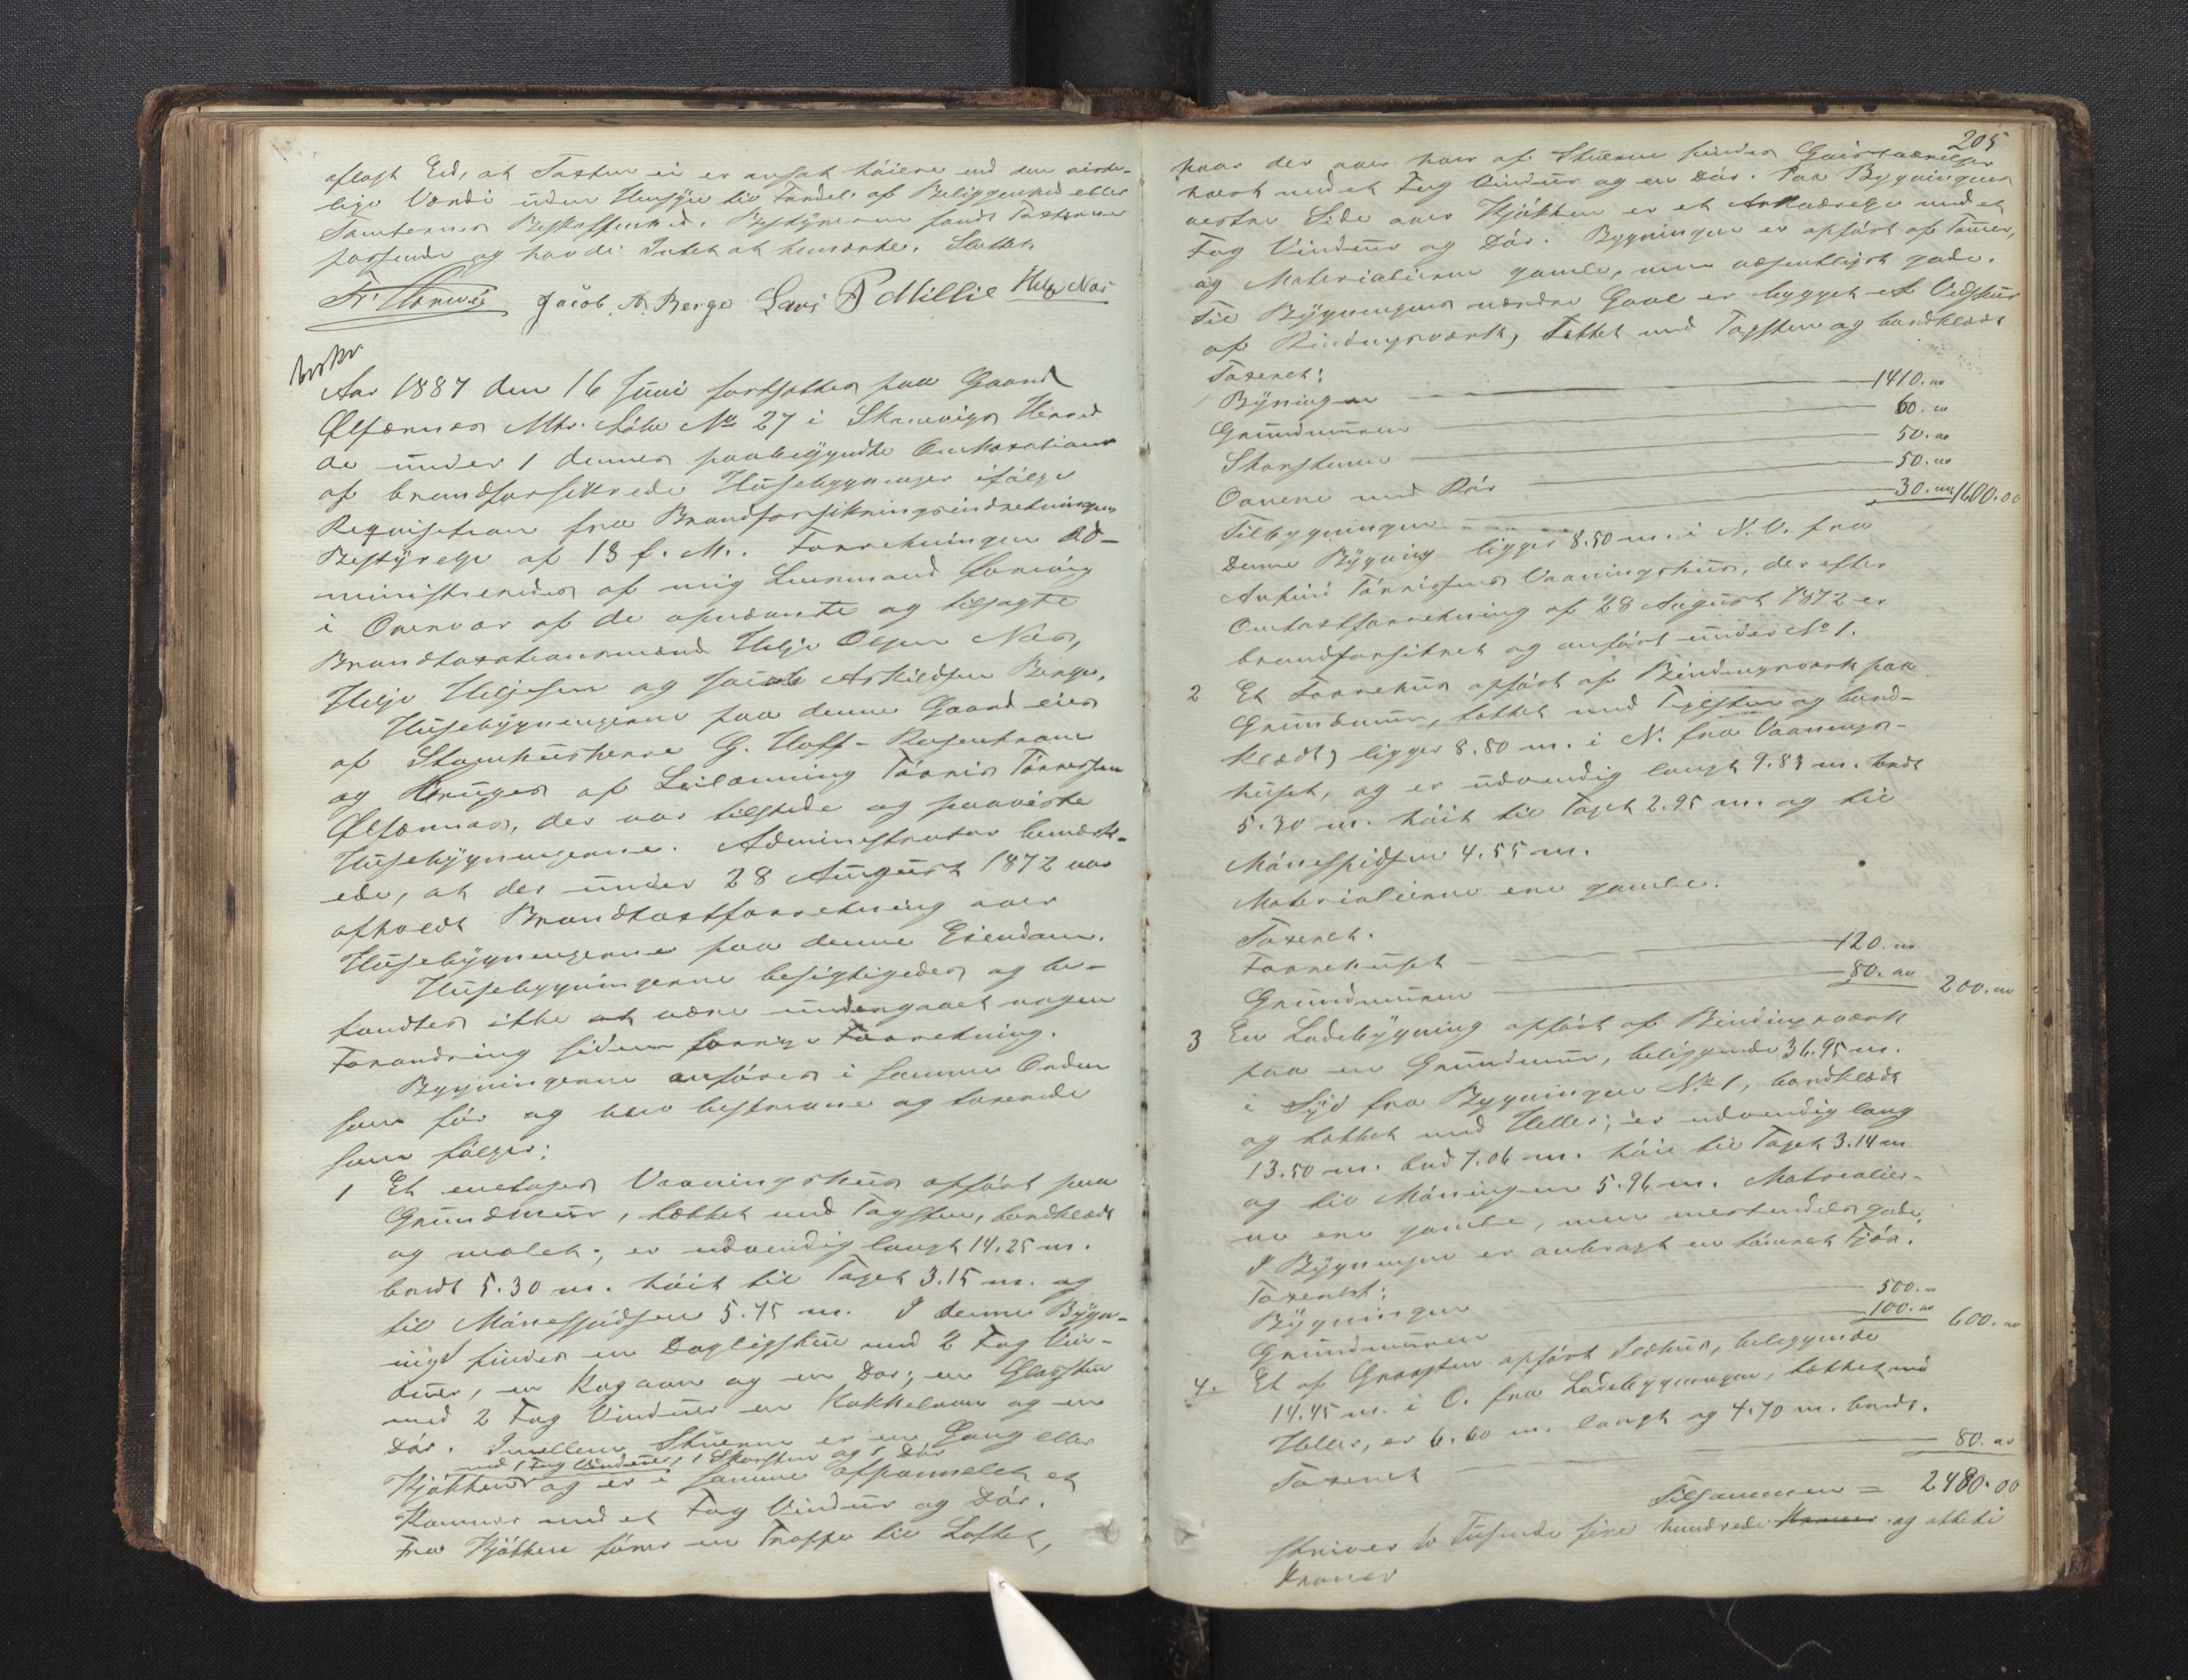 aflagt Eed, at Taxten ei er ansat høiere end den virke-
lige Værdi uden Hensyn til Fordel af Beliggenhed eller
Tomternes Beskaffenhed. Bestyreren fandt Taxterne
passende og havde Intet at bemærke. Sluttet.
Jacob. A. Berge Lars P Millie Helge Næs
Aar 1887 den 16 Juni fortsattes paa Gaard
Ølfærnæs Mtr. Løbe No 27 i Skaanevigs Herred
de under 1 dennes paabegyndte Omtaxationer
af brandforsikrede Husebygninger ifølge
Requisition fra Brandforsikringsindretningens
Bestyrelse af 13 f. M. Forretningen Ad-
ministreredes af mig Lensmand
i Overvær af de opnævnte og tilsagte
Brandtaxationsmænd Helje Olsen Næs,
Helje Heljesen og Jacob Askildsen Berge.
Husebygningerne paa denne Gaard eies
af Stamhusherre G. Hoff-Rosenkrone
og bruges af Leilænding Tørris Tørrissen
Ølfærnæs, der var tilstede og paaviste
Husebygningerne. Administrator bemærk-
ede, at der under 28 August 1872 var
afholdt Brandtaxtforretning over
Husebygningerne paa denne Eiendom.
Husebygningerne besigtigedes og be-
fandtes ikke at være undergaaet nogen
Forandring siden forrige Forretning.
Bygningerne anføres i samme Orden
som før og blev beskrevne og taxerede
som følger:
1 Et eenetages Vaaningshus opført paa
Grundmuur, tækket med Tagsten, bordklædt
og malet; er udvendig langt 14.25 m.
bredt 5.30 m. høit til Taget 3.15 m. og
til Mønespidsen 5.75 m. I denne Bygn-
ing findes en Dagligstue med 2 Fag Vin-
duer, en Kogovn og en Dør; en Glasstue
med 2 Fag Vinduer en Kakkelovn og en
Dør. Imellem Stuerne er en Gang eller
med 1 Fag Vinduer, 1 Skorsten og 1 Dør
Kjøkken og er i samme afpannelet et
Kammer med et Fag Vindue og Dør.
Fra Kjøkken fører en Trappe til Loftet,
205
hvor der over hver af Stuerne findes
hvert med et Fag Vindue og en Dør. Paa Bygningens
vestre Side over Kjøkken er et Arkværelse med et
Fag Vindue og Dør. Bygningen er opført af Tømer,
og Materialierne gamle, men væsentligst gode.
Til Bygningens nordre Gavl er bygget et Vedskur
af Bindingsværk, Tækket med Tagsten og bordklædt
Taxeret:
Bygningen 1410.00
Grundmuren 60.00
Skorstenen 50.00
Ovnene med Rør 50.00
Tilbygningen 30.00 1600.00
Denne Bygning ligger 8.50 m. i N. O. fra
Anfind Tørrissens Vaaningshus, der efter
Omtaxtforretning af 28 August 1872 er
brandforsikret og anført under No 1.
2 Et Tørrehus opført af Bindingsværk paa
Grundmuur, tækket med Teglsten og bord-
klædt) ligger 8.80 m. i N. fra Vaanings-
huset, og er udvendig langt 9.83 m. bredt
5.30 m. høit til Taget 2.95 m. og til
Mønespidsen 4.55 m.
Materialierne ere gamle.
Taxeret.
Tørrehuset 120.00
Grundmuren 80.00 200.00
3 En Ladebygning opført af Bindingsværk
paa en Grundmuur, beliggende 36.95 m.
i Syd fra Bygningen No 1, bordklædt
og tækket med Heller; er udvendig lang
13.50 m. bred 7.06 m. høi til Taget 3.14 m
og til Mønningen 5.96 m. Matrealier-
ne ere gamle, men mestendels gode.
I Bygningen er anbragt en tømret Fjøs.
Taxeret:
Bygningen 500.00
Grundmuren 100.00 600.00
4. Et af Graasten opført Ildhus, beliggende
14.45 m. i O. fra Ladebygningen, tækket med
Heller, er 6.60 m. langt og 4.70 m. bredt.
Taxeret 80.00
Tilsammen = 2480.00
skriver to Tusende fire hundrede Kroner og otteti
Kroner